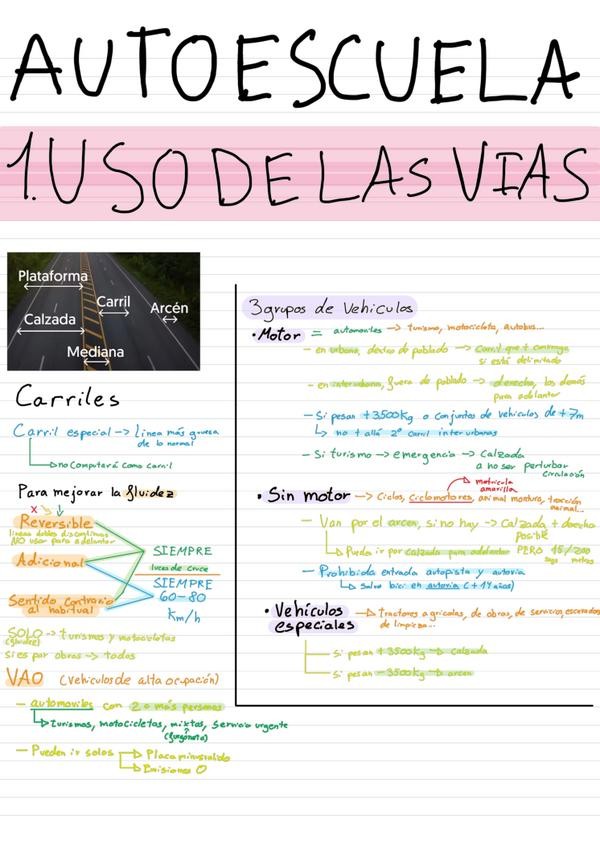 AUTOESCUELA
1. USO DE LAS VIAS
Plataforma
Carril
Arcén
Calzada
Mediana
Carriles
Carril especial -> linea más gruesa
de lo normal
no computará como carril
Para mejorar la fluidez
X
Reversible
lineas dobles discontinuas
NO usar para adelantar
Adicional
Sentido contrario
al habitual
SIEMPRE
luces de cruce
SIEMPRE
60-80
km/h
SOLO -> turismos y motocicletas
(fluidez)
Si es por obras -> todos
VAO (vehiculos de alta ocupación)
- automoviles con 2 o más personas
Turismos, motocicletas, mixtos, servicio urgente
(furgoneta)
- Pueden ir solos
Placa minusvalido
Emisiones 0
3 grupos de Vehiculos
• Motor = automoviles -> turismo, motocicleta, autobus...
- en urbana, dentro de poblado -> Carril que + convenga
si está delimitado
- en interurbana, fuera de poblado -> derecha, los demás
para adelantar
- Si pesan +3500kg o conjuntos de vehiculos de +7m
no + allá 2º carril interurbanas
- Si turismo -> emergencia -> calzada
a no ser perturbar
circulación
matricula
amarilla
• Sin motor -> Ciclos, Ciclomotores, animal montura, tracción
animal...
- Van por el arcen, si no hay -> Calzada + derecha
posible
Puede ir por calzada para adelantar PERO 15/200
segs metros
- Prohibida entrada autopista y autovia
Salvo bici en autovia (+14 años)
• Vehículos
especiales
-> Tractores agricolas, de obras, de servicios, escerados
de limpieza...
Si pesan +3500kg -> calzada
Si pesan -3500kg -> arcen